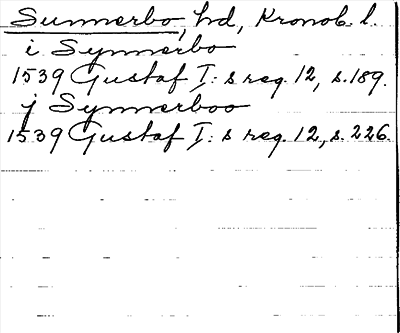 Sunnerbo, hd, Kronob. l.
i Synnerbo
1539 Gustaf I: s reg. 12, s. 189.
j Synnerboo
1539 Gustaf I: s reg. 12, s. 226.